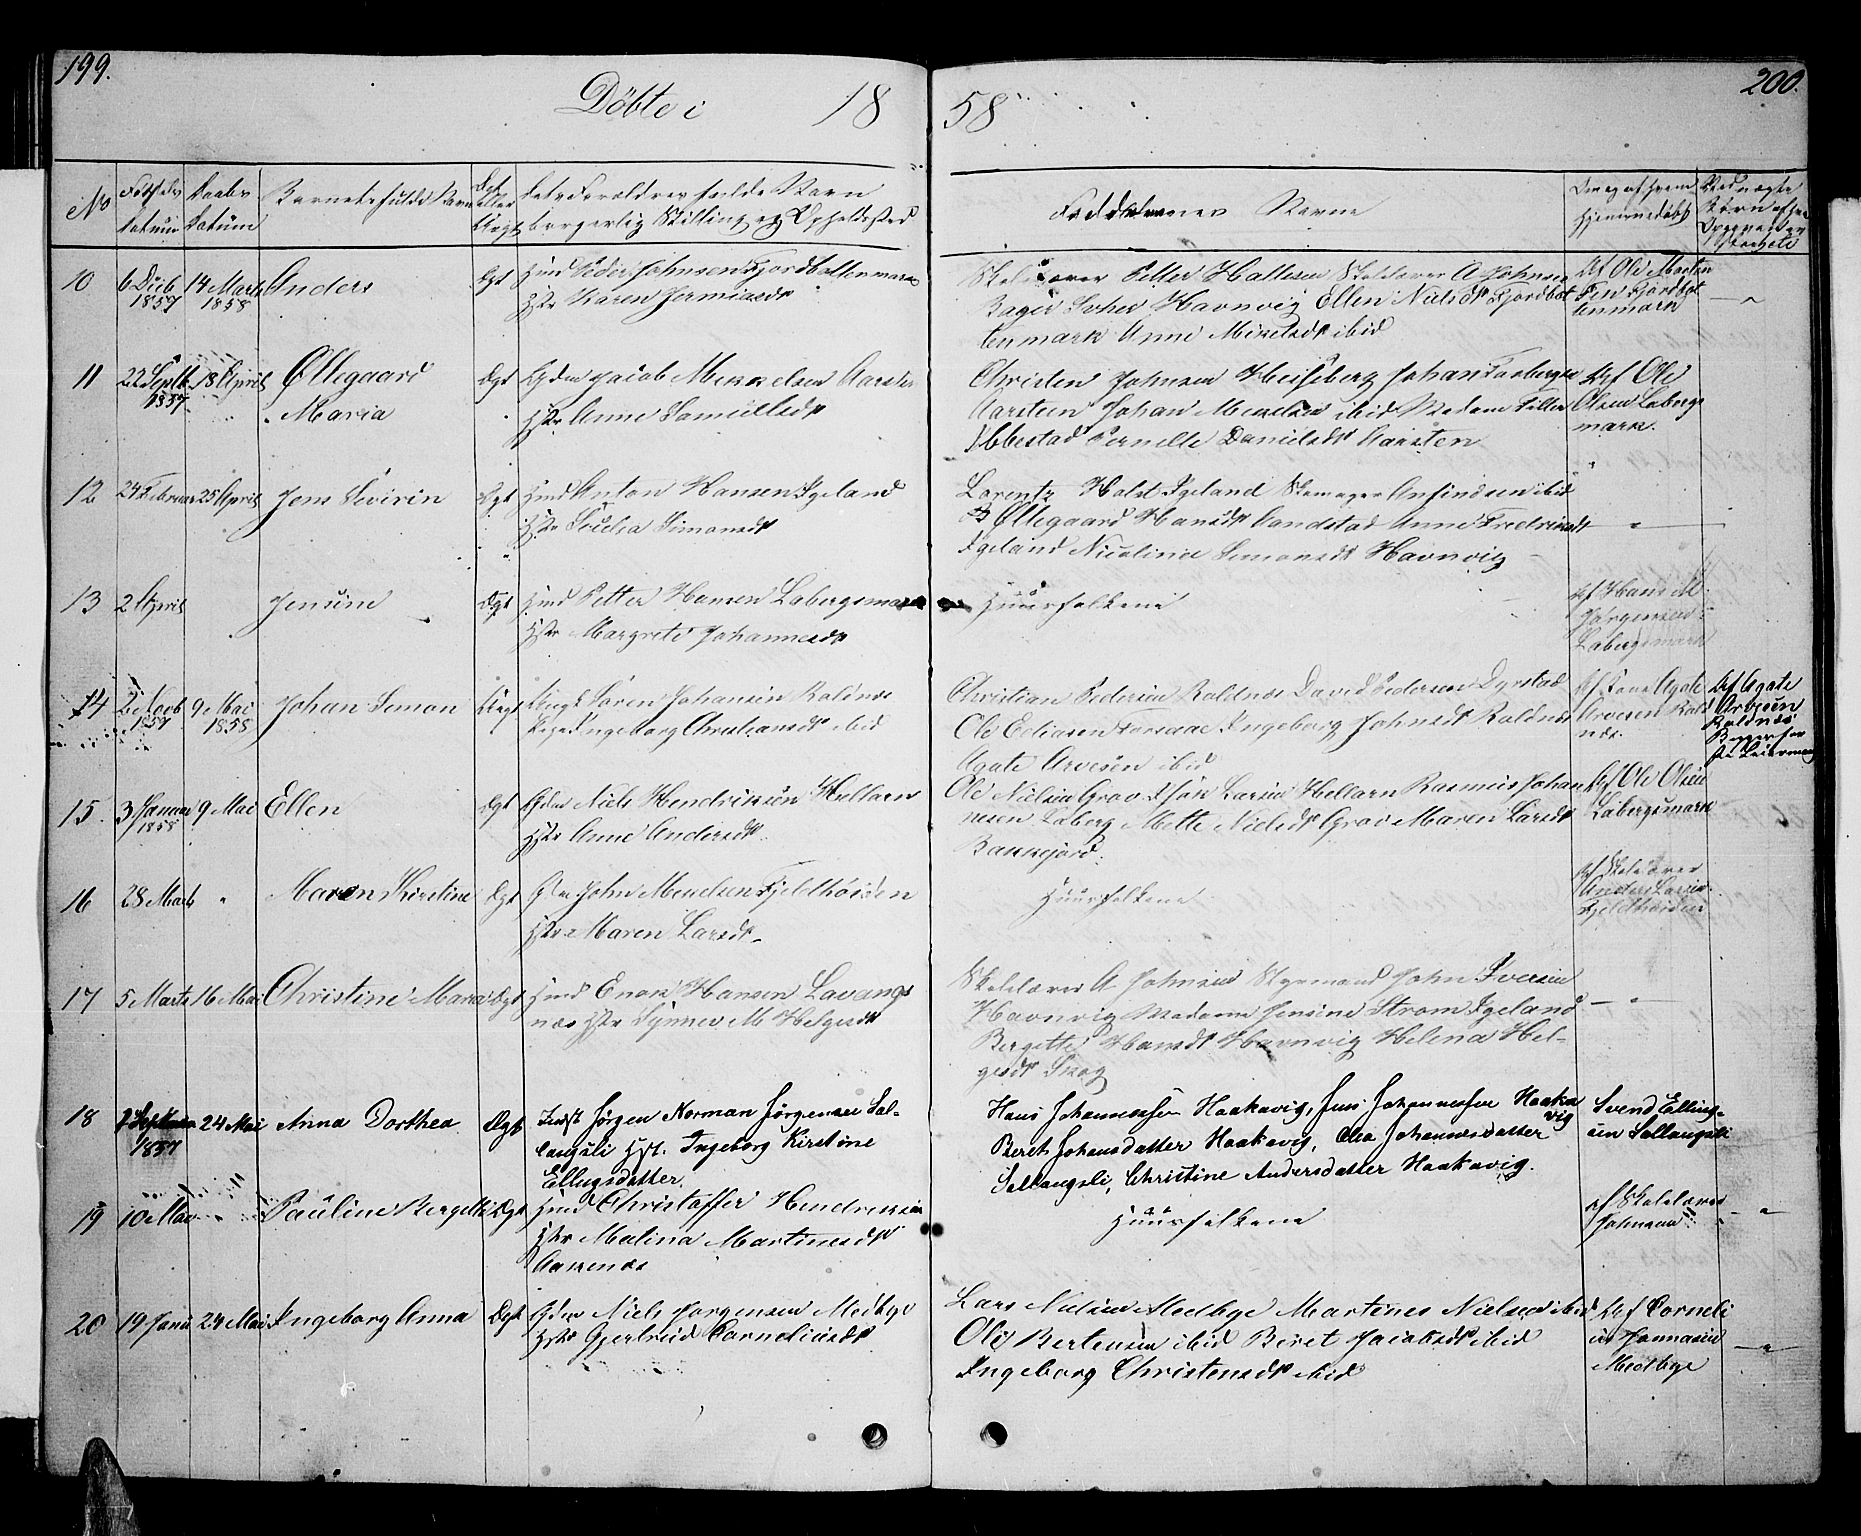 199.
200.
Döbte i 18 58
No
Födsels datum
Daabs datum
Barnets fulde Navn
Egt eller Uegt
Forældres fulde Navn
borgerlig Stilling og Opholdssted
Faddernes Navne
Om og af hvem hjemmedöbt
10 6 Decb 1857 14 Marts 1858 Anders Ægt Hmd Peder Johnsen Fjordbottenmark
Hstr Karen Jermiasdt
Skolelærer Petter Hallesen Skolelærer A Johnsen
Havnvig Ellen Nielsdt Fjordbot
tenmark Anne Mikelsdt ibid
Af Ole Morten
Fjordbot
tenmark
11 22 Septb 1857 18 April Øllegaard Maria Ægt Gdm Jacob Mikkelsen Aarsten
Hstr Anne Samuelsdt
Christen Johnsen Johan
Aarsteen Johan Mikelsen ibid Madam
Ibbestad Pernille Danielsdt Aarsten
Af Ole
Olsen Labergs
mark.
12 24 Februar 25 April Jens Sivirin Ægt Hmd Anton Hansen Igeland
Hstr Simonsdt
Lorentz Holst Igeland ibid
Øllegaard Hansdt Sandstad Anne Fredriksdt
Igeland Nicolina Simonsdt Havnvig
13 2 April Jensine Ægt Hmd Petter Hansen Labergsmark
Hstr Margrete Johannesdt
Huusfolkene
Af Hans M
Jörgensen
Labergsmark
14 2 Novb 1857 9 Mai 1858 Johan Simon Uægt Ungk Sören Johansen Roldnæs
Pige Ingeborg Christiansdt ibid
Christian Pedersen Roldnæs David Pedersen Dyrstad
Ole Eliasen Ingeborg Johnsdt Roldnæs
Agate Arvesen ibid
Agate
Arvesen Rold
næs.
Af Agate
Arvesen
Roldnæs
15. 3 Januar 1858 9 Mai Ellen Ægt Gdm Niels Hendriksen Hellarn
Hstr Anne Andersdt.
Ole Nielsen Grov Larsen Hellarn Rasmus Johan
nesen Laberg Mette Nielsdt Grov Maren Larsdt
Bankejord.
Af Ole Olsen
Labergsmark
16 28 Marts " Maren Kirstine Ægt John Fjeldhöiden
Hstr Maren Larsdt
Huusfolkene
Af Skolelærer
Anders Larsen
Fjeldhöiden
17 5 Marts 16 Mai Christine Maria Ægt Hmd Enok Hansen Lavangs
næs Hstr Synnev M Helgesdt
Skolelærer A Johnsen Styrmand John Iversen
Havnvig Madame Jensine Strom Igeland
Bergette Hansdt Havnvig Helena Hel-
gesdt Skog
18 1857 24 Mai Anna Dorthea Ægt Indst Jörgen Norman Jörgensen Sal-
langsli Hst. Ingeborg Kirstine
Ellingsdatter.
Hans Johannessen Haakavig, Jens Johannessen Haaka
vig
Beret Johansdatter Haakavig, Olea Johannesdatter
Sallangsli, Christine Andersdatter Haakavig.
Svend Elling-
sen Sallangsli
19 10 Mai Pauline Bergette Ægt Hmd Christoffer Hendriksen
Hstr Malina Martinesdt
Aakenæs
Huusfolkene
Af Skolelærer
Johnsen
20 19 Janu 24 Mai Ingeborg Anna Ægt Gdm Niels Jorgensen Medbye
Hstr Gjertrud Corneliusdt
Lars Nielsen Medbye Martines Nielsen ibid
Ole Bertensen ibid Beret Jacobsdt ibid
Ingeborg Christensdt ibid
Af Corneli
us Jonnasen
Medbye